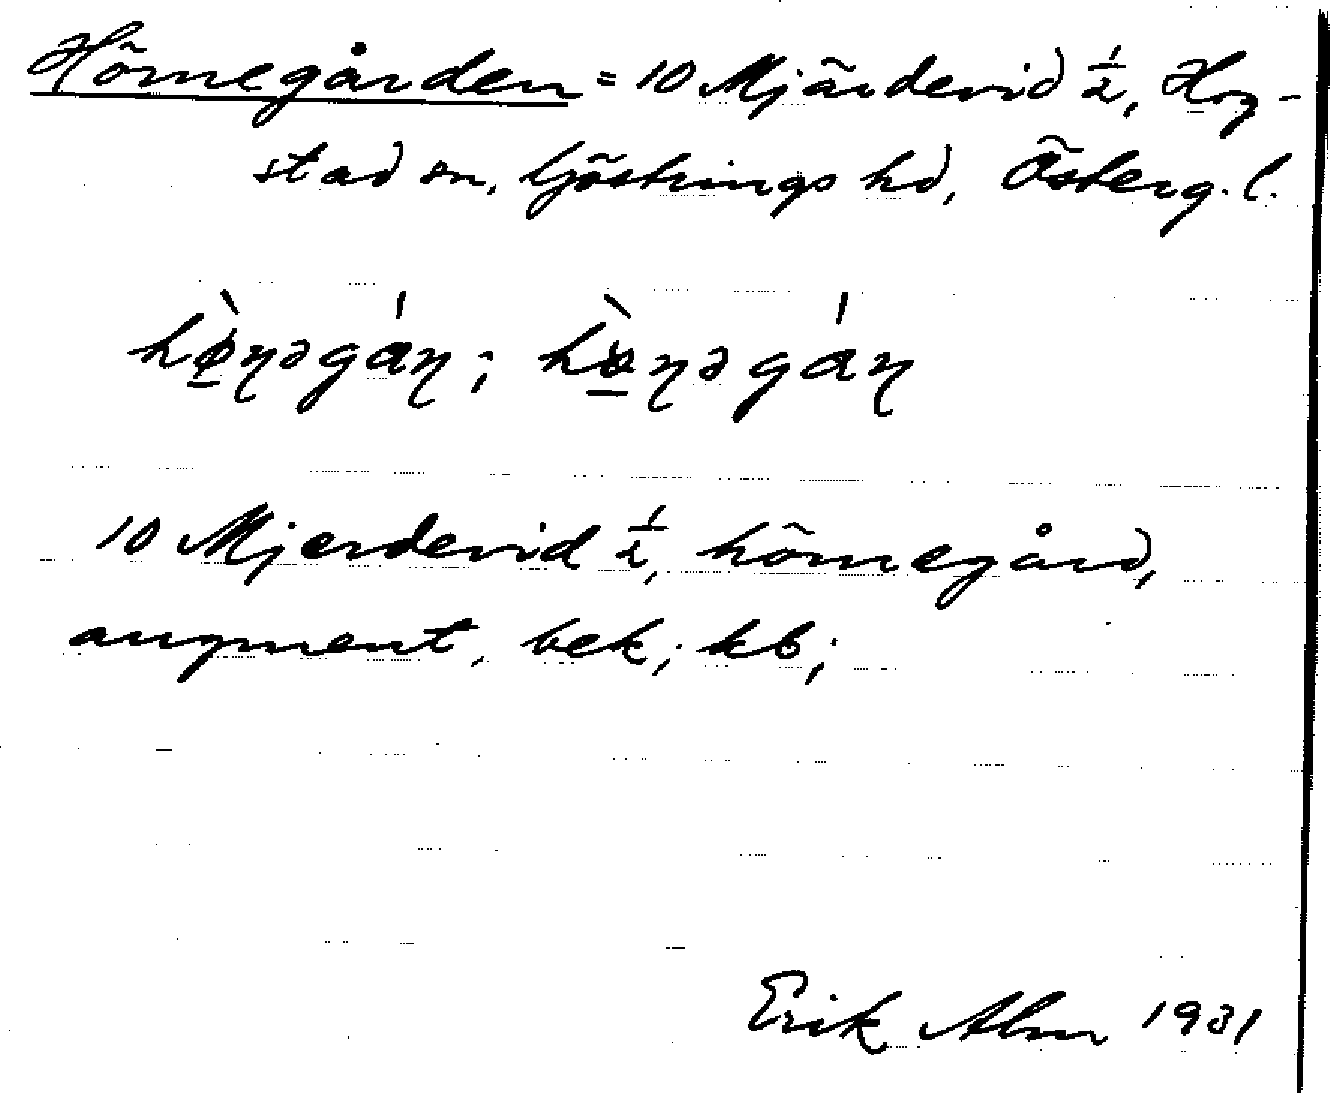 Hörnegården = 10 Mjärdevid 1/2, Hog-
stad sn, Göstrings hd, Österg. l.
10 Mjerdevid 1/2, hörnegård,
augment, bek; kb;
Erik Alm 1931